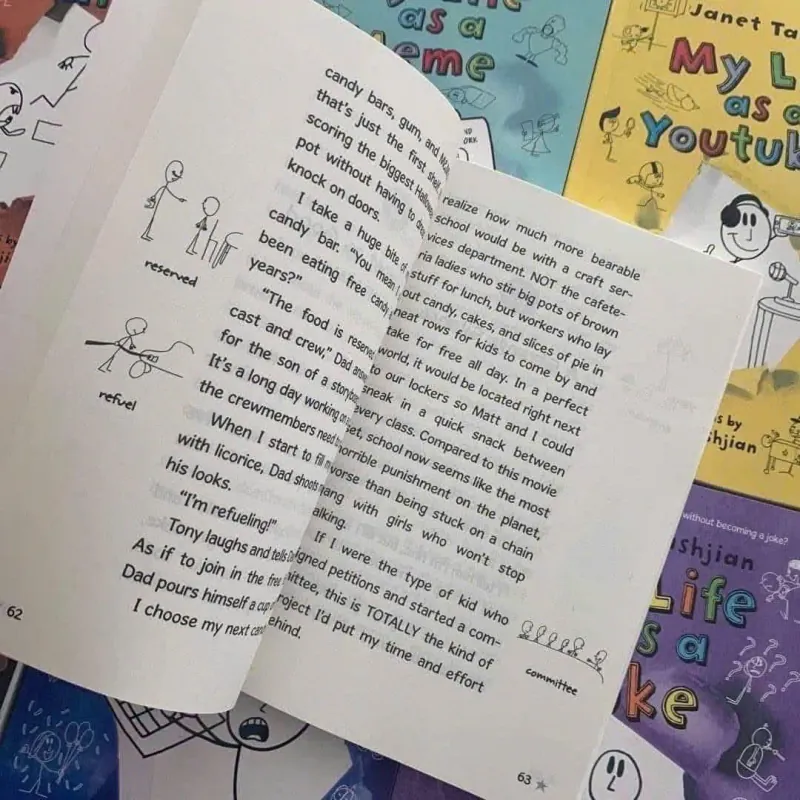 as a
Meme
Janet Ta
My L
as a
Youtub
candy bars, gum, and
that's just the first
scoring the biggest
pot without having to
knock on doors.
I take a huge bite of
candy bar. "You mean I
been eating free candy
years?"
"The food is reserved
cast and crew," Dad
for the son of a
It's a long day working on
the crewmembers need
When I start to fill
with licorice, Dad shoots
his looks.
"I'm refueling!"
Tony laughs and tells
As if to join in the free
Dad pours himself a cup
I choose my next
reserved
refuel
62
realize how much more bearable
school would be with a craft ser-
vices department. NOT the cafete-
ria ladies who stir big pots of brown
stuff for lunch, but workers who lay
out candy, cakes, and slices of pie in
neat rows for kids to come by and
take for free all day. In a perfect
world, it would be located right next
to our lockers so Matt and I could
sneak in a quick snack between
every class. Compared to this movie
set, school now seems like the most
horrible punishment on the planet,
worse than being stuck on a chain
gang with girls who won't stop
alking.
If I were the type of kid who
igned petitions and started a com-
mittee, this is TOTALLY the kind of
roject I'd put my time and effort
ehind.
committee
63
s by
shjian
without becoming a joke?
ashjian
Life
s a
ke